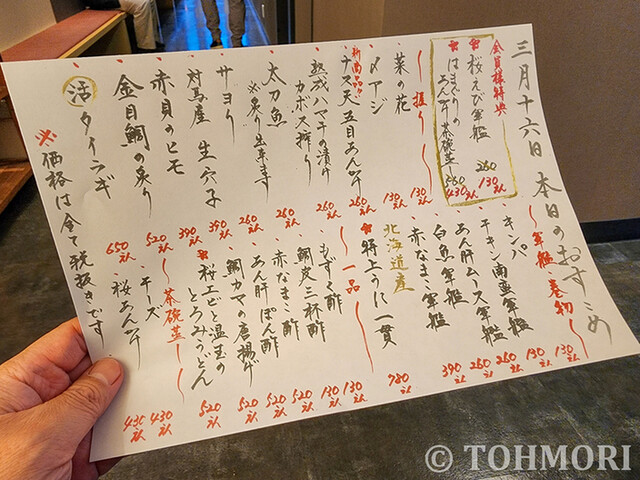 三月十六日 本日のおすすめ
会員様特典
桜えび軍艦 260 130えん
はまぐりの
あんかけ茶碗蒸し 560 430えん
握り
菜の花 130えん
〆アジ 130えん
新商品!!
ナス天五目あんかけ 260えん
熟成ハマチの漬け
カボス搾り 260えん
太刀魚
※炙り出来ます 260えん
サヨリ 260えん
対馬産 生穴子 390えん
赤貝のヒモ 390えん
金目鯛の炙り 520えん
活 タイラギ 650えん
軍艦・巻物
キンパ 130えん
チキン南蛮軍艦 130えん
あん肝ムース軍艦 260えん
白魚軍艦 260えん
赤なまこ軍艦 390えん
北海道産
特上うに一貫 780えん
一品
もずく酢 130えん
鯛皮三杯酢 130えん
赤なまこ酢 520えん
あん肝ぽん酢 520えん
鯛カマの唐揚げ 520えん
桜エビと温玉の
とろみうどん 520えん
茶碗蒸し
チーズ 430えん
桜あんかけ 430えん
※価格は全て税抜きです
© TOHMORI